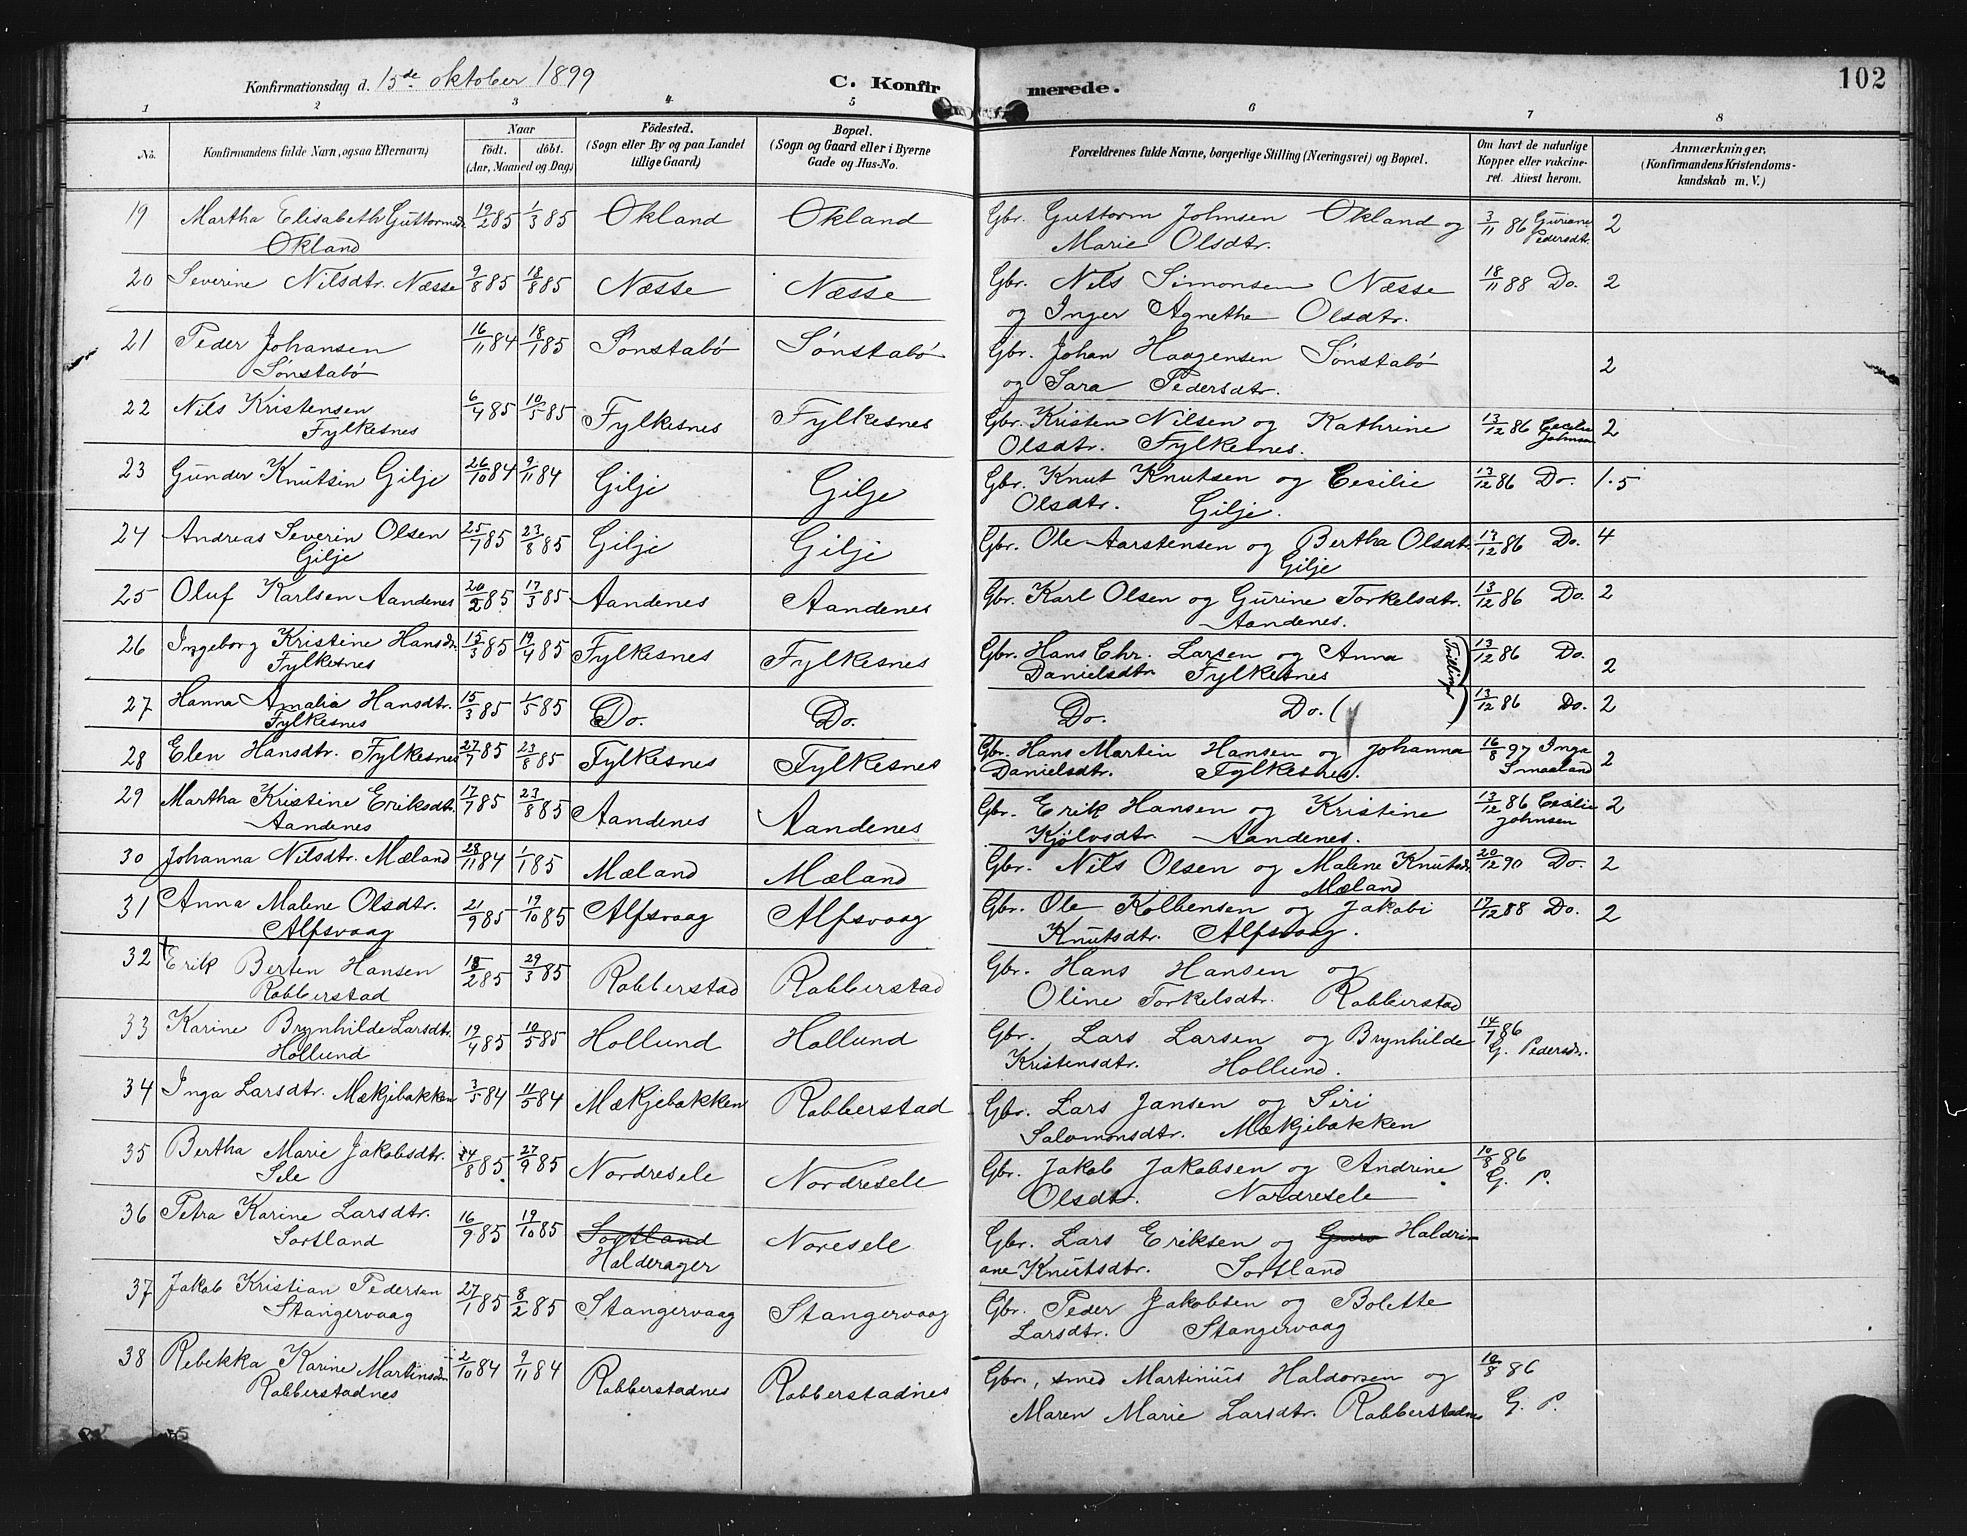 Konfirmationsdag d. 15de Oktober 1899 C. Konfirmerede. 102
1 2 3 4 5 6 7 8
No. Konfirmandens fulde Navn, ogsaa Efternavn) Naar födt. döbt. (Aar, Maaned og Dag) Födested. (Sogn eller By og paa Landet tillige Gaard) Bopæl. (Sogn og Gaard eller i Byerne Gade og Hus-No. Forældrenes fulde Navne, borgerlige Stilling (Næringsvei) og Bopæl. Om havt de naturlige Kopper eller vakcineret. Attest herom. Anmærkninger, (Konfirmandens Kristendomskundskab m. V.)
19 Martha Elisabeth Guttormsdr. 19/2 85 1/3 85 Økland Økland Gbr. Guttorm Johnsen Økland og 3/11 86 Guriane Pedersdtr. 2
Økland Marie Olsdtr.
20 Severine Nilsdtr. Næsse 9/8 85 18/8 85 Næsse Næsse Gbr. Nils Simonsen Næsse 18/11 88 Do. 2
og Inger Agnethe Olsdtr.
21 Peder Johansen 16/11 84 18/1 85 Sønstabø Sønstabø Gbr. Johan Haagensen Sønstabø 2
Sønstabø og Sara Pedersdtr.
22 Nils Kristensen 6/4 85 10/5 85 Fylkesnes Fylkesnes Gbr. Kristen Nilsen og Kathrine 13/12 86 Cecilie Johnsen 2
Fylkesnes Olsdtr. Fylkesnes.
23 Gunder Knutsen Gilje 26/10 84 9/11 84 Gilje Gilje Gbr. Knut Knutsen og Cesilie 13/12 86 Do. 1.5
Olsdtr. Gilje.
24 Andreas Severin Olsen 25/7 85 23/8 85 Gilje Gilje Gbr. Ole Aarstensen og Bertha Olsdt. 13/12 86 Do. 4
Gilje Gilje
25 Oluf Karlsen Aandenes 20/2 85 17/3 85 Aandenes Aandenes Gbr. Karl Olsen og Gurine Torkelsdtr. 13/12 86 Do. 2
Aandenes.
26 Ingeborg Kristine Hansdr. 15/3 85 19/4 85 Fylkesnes Fylkesnes Gbr. Hans Chr. Larsen og Anna Tvillinger 13/12 86 Do. 2
Fylkesnes Danielsdtr. Fylkesnes
27 Hanna Amalia Hansdtr. 15/3 85 1/5 85 Do. Do. Do. Do. 13/12 86 Do. 2
Fylkesnes
28 Elen Hansdtr. Fylkesnes 27/7 85 23/8 85 Fylkesnes Fylkesnes Gbr. Hans Martin Hansen og Johanna 16/8 97 Inga Smaaland 2
Danielsdtr. Fylkesnes.
29 Martha Kristine Eriksdtr. 17/7 85 23/8 85 Aandenes Aandenes Gbr. Erik Hansen og Kristine 13/12 86 Cesilie Johnsen 2
Aandenes Kjølvsdtr. Aandenes.
30 Johanna Nilsdtr. Mæland 28/11 84 1/1 85 Mæland Mæland Gbr. Nils Olsen og Malene Knutsdr. 20/12 90 Do. 2
Mæland
31 Anna Malene Olsdtr. 21/9 85 19/10 85 Alfsvaag Alfsvaag Gbr. Ole Kolbensen og Jakobi 17/12 88 Do. 2
Alfsvaag Knutsdtr. Alfsvaag.
32 Erik Berten Hansen 18/2 85 29/3 85 Robberstad Robberstad Gbr. Hans Hansen og
Robberstad Oline Torkelsdtr. Robberstad
33 Karine Brynhilde Larsdtr. 19/4 85 10/5 85 Hollund Hollund Gbr. Lars Larsen og Brynhilde 14/7 86
Hollund Kristensdtr. Hollund. G. Pedersdr.
34 Inga Larsdtr. Mækjebakken 3/5 84 11/5 84 Mækjebakken Robberstad Gbr. Lars Jansen og Siri
Salomonsdtr. Mækjebakken
35 Bertha Marie Jakobsdtr. 14/8 85 27/9 85 Nordresele Nordresele Gbr. Jakob Jakobsen og Andrine 10/8 86
Sele Olsdtr. Nordresele G. P.
36 Petra Karine Larsdtr. 16/9 85 19/10 85 Sortland Noresele Gbr. Lars Eriksen og Guro Haldri-
Sortland Halderager ane Knutsdtr. Sortland
37 Jakob Kristian Pedersen 27/1 85 8/2 85 Stangervaag Stangervaag Gbr. Peder Jakobsen og Bolette
Stangervaag Larsdtr. Stangervaag
38 Rebekka Karine Martinsdr. 2/10 84 9/11 84 Robberstadnes Robberstadnes Gbr., smed Martinius Haldorsen og 10/8 86
Robberstadnes Maren Marie Larsdtr. Robberstadnes G. P.